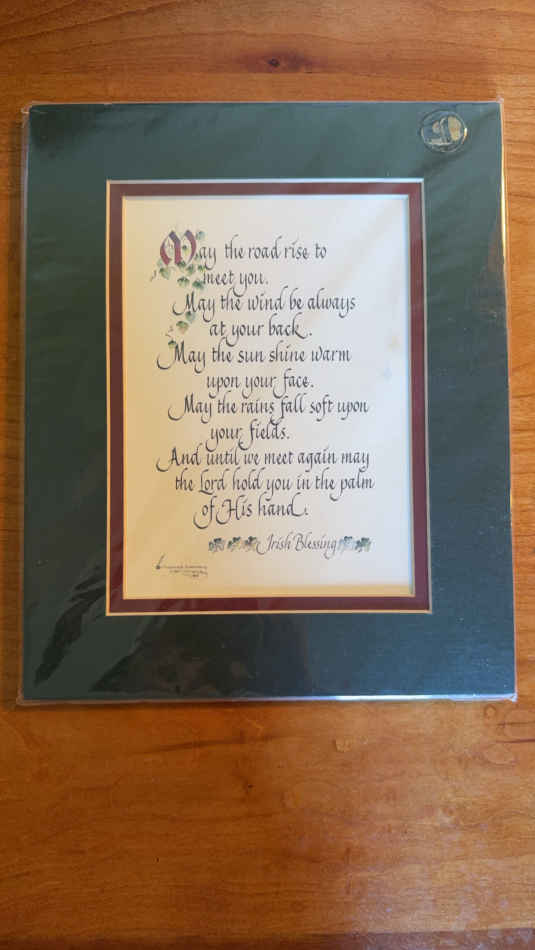 May the road rise to
meet you.
May the wind be always
at your back.
May the sun shine warm
upon your face.
May the rains fall soft upon
your fields.
And until we meet again may
the Lord hold you in the palm
of His hand.
Irish Blessing